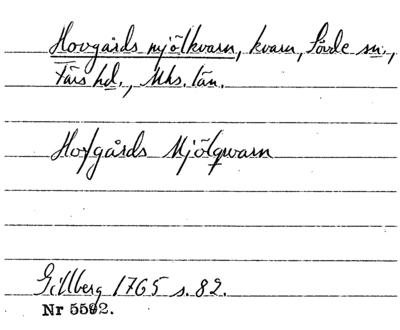 Hovgårds mjölkvarn, kvarn, Sövde sn.,
Färs hd., Mhs. län.
Hofgårds Mjölqvarn
Gillberg 1765 s. 82.
Nr 5592.